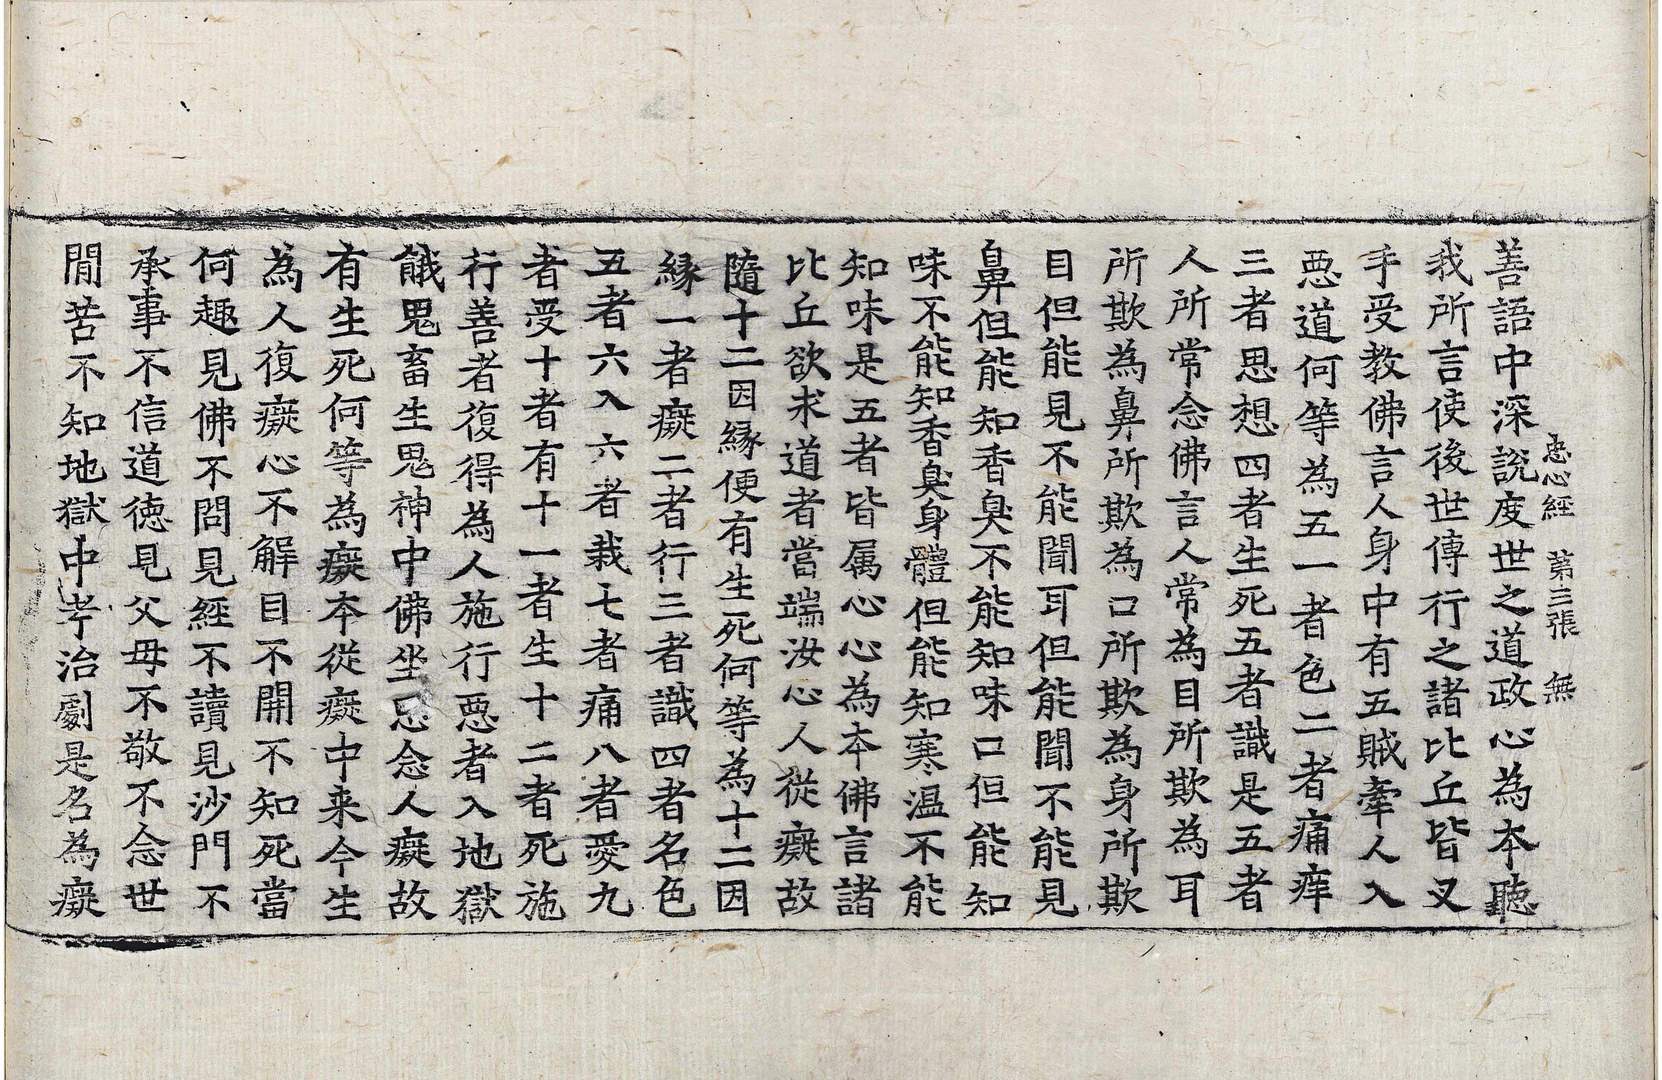 忠心經 第三張 無
善語中深說度世之道政心為本聽
我所言使後世傳行之諸比丘皆叉
手受教佛言人身中有五賊牽人入
惡道何等為五一者色二者痛痒
三者思想四者生死五者識是五者
人所常念佛言人常為目所欺為耳
所欺為鼻所欺為口所欺為身所欺
目但能見不能聞耳但能聞不能見
鼻但能知香臭不能知味口但能知
味不能知香臭身體但能知寒温不能
知味是五者皆属心心為本佛言諸
比丘欲求道者當端汝心人從癡故
隨十二因緣便有生死何等為十二因
緣一者癡二者行三者識四者名色
五者六入六者栽七者痛八者愛九
者受十者有十一者生十二者死施
行善者復得為人施行惡者入地獄
餓鬼畜生鬼神中佛坐思念人癡故
有生死何等為癡本從癡中来今生
為人復癡心不解目不開不知死當
何趣見佛不問見經不讀見沙門不
承事不信道德見父母不敬不念世
間苦不知地獄中考治劇是名為癡